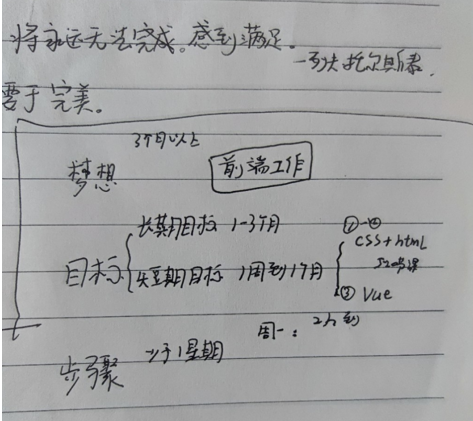 将永远无法完成。感到满足。
—列夫托尔斯泰.
要于完美。
3个月以上
梦想 前端工作
长期目标 1-3个月
目标 短期目标 1周到1个月
①-② css+html
③ Vue
周一:2h
步骤 少于1星期